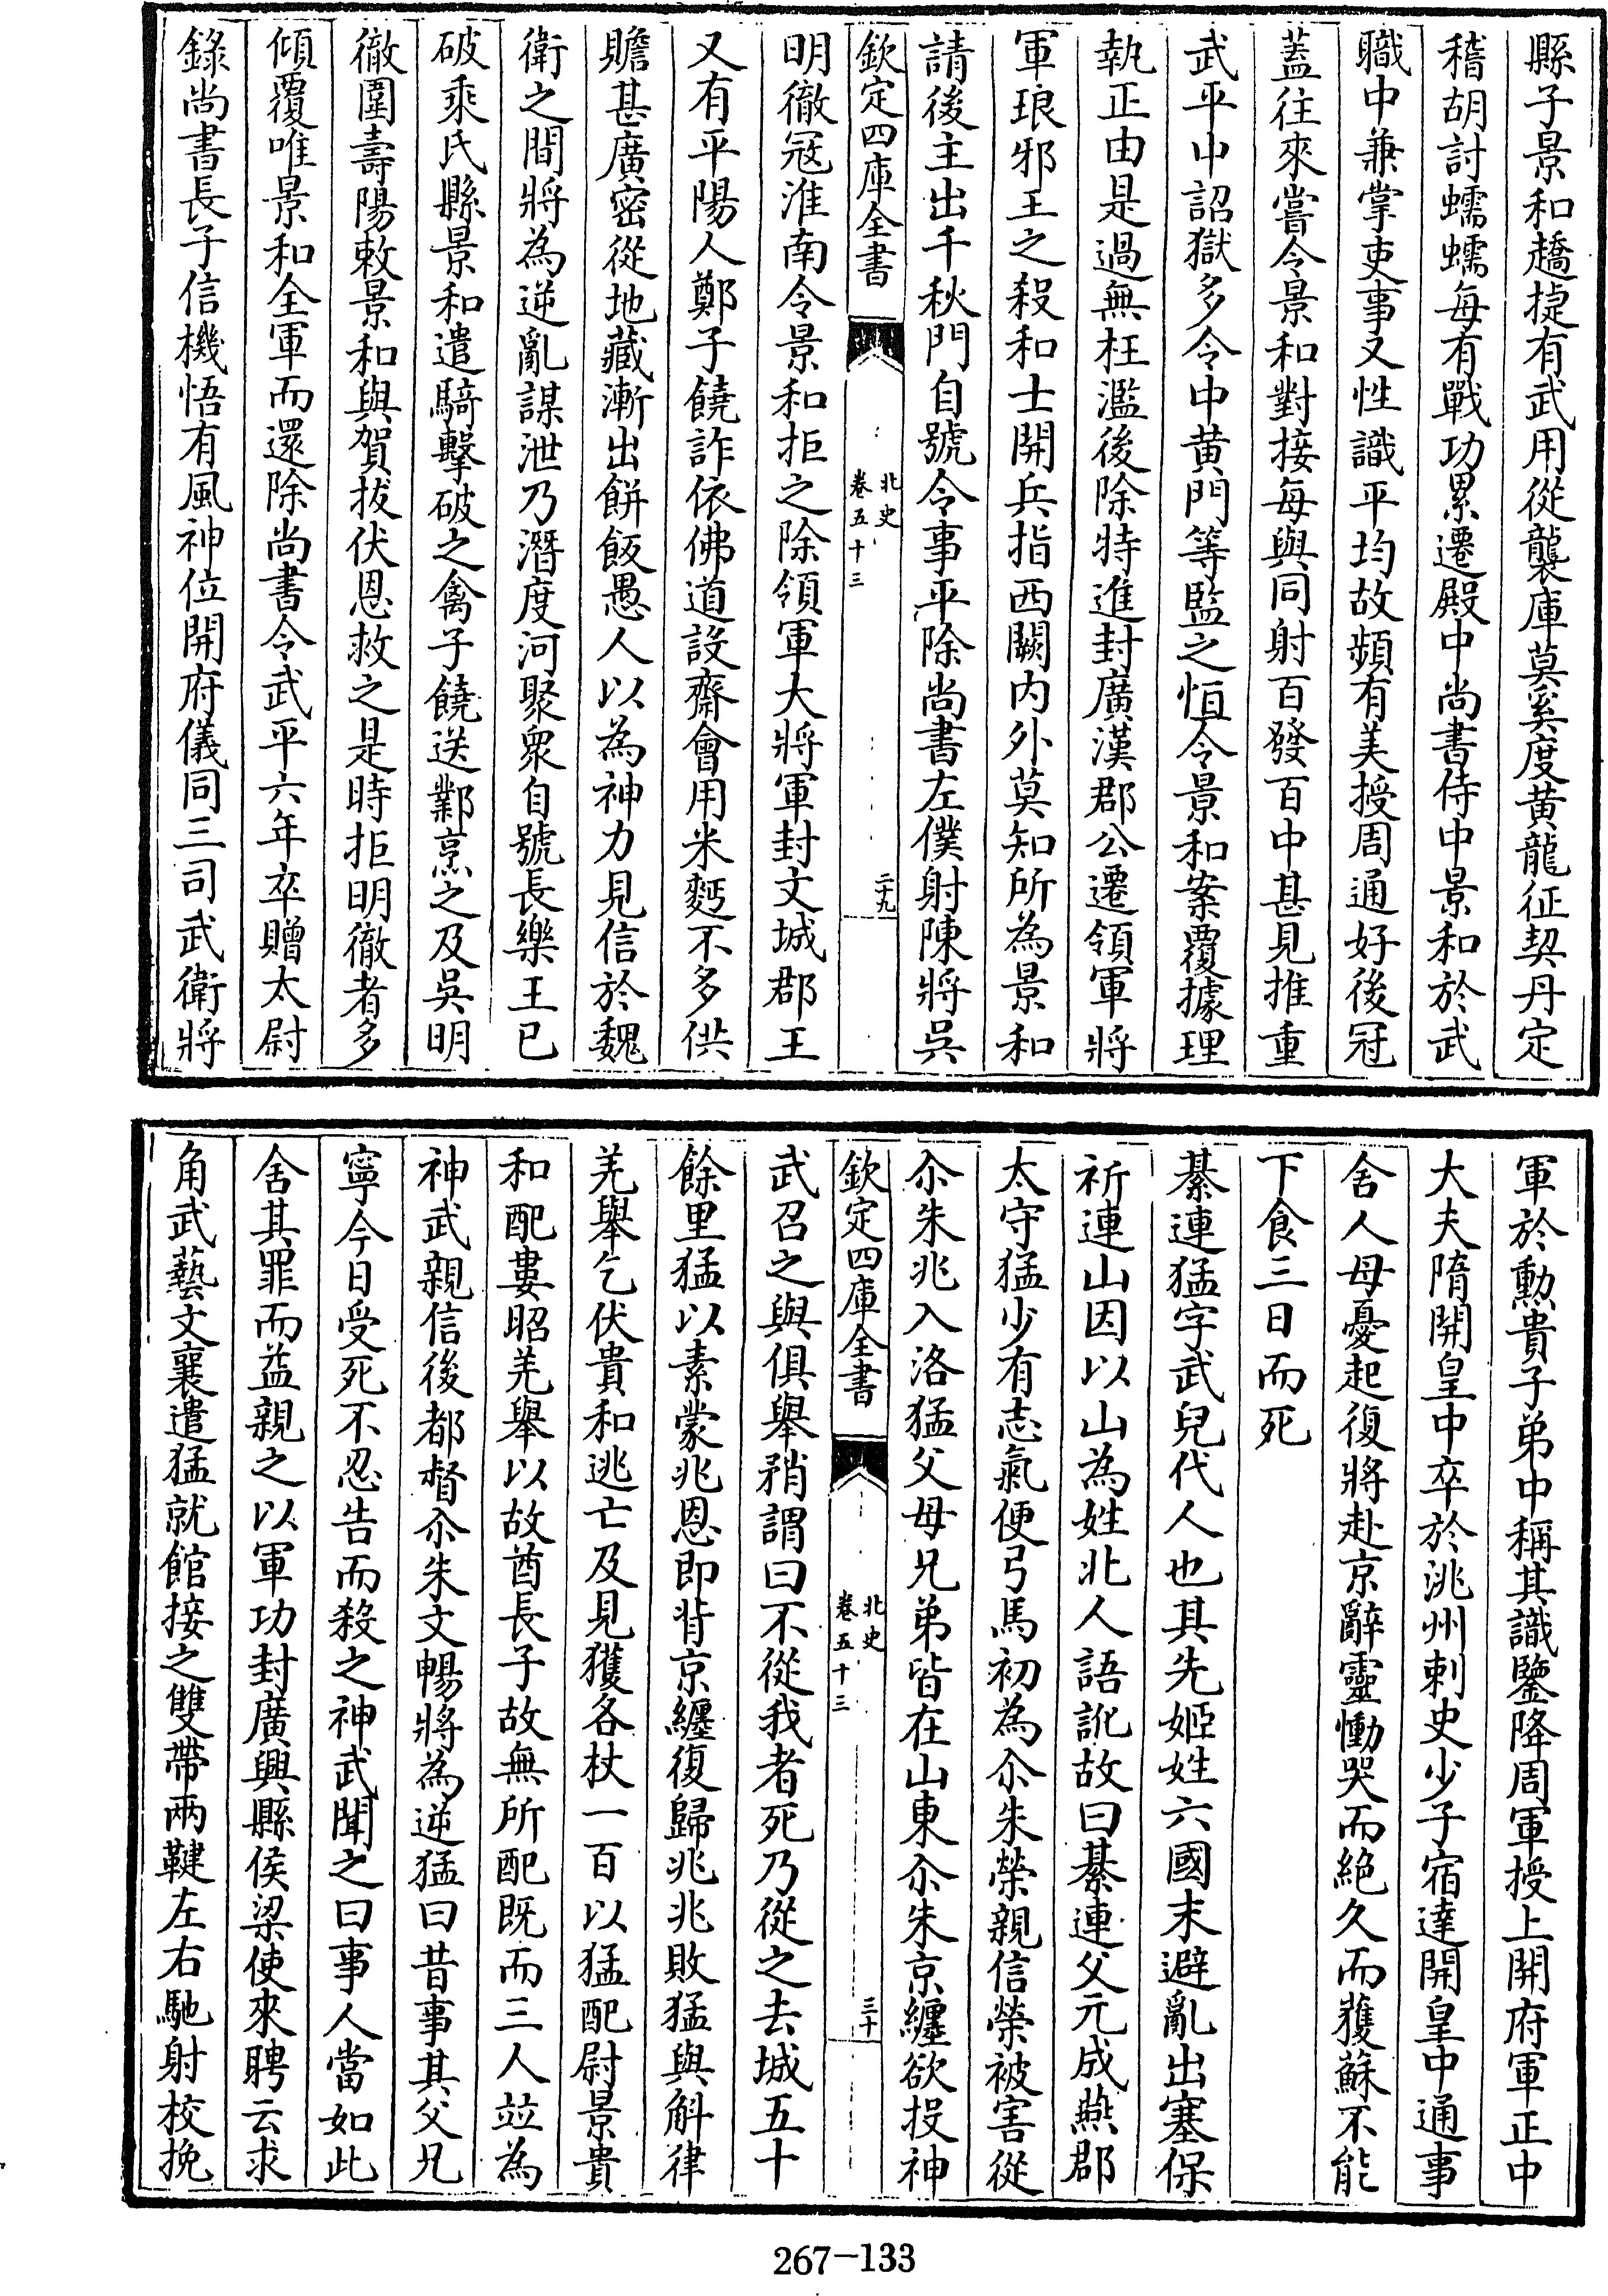 縣子景和趫捷有武用從襲庫莫奚度黃龍征契丹定
稽胡討蠕蠕每有戰功累遷殿中尚書侍中景和於武
職中兼掌吏事又性識平均故頻有美授周通好後冠
蓋往來嘗令景和對接每與同射百發百中甚見推重
武平中詔獄多令中黃門等監之恒令景和案覆據理
執正由是過無枉濫後除特進封廣漢郡公遷領軍將
軍琅邪王之殺和士開兵指西闕內外莫知所為景和
請後主出千秋門自號令事平除尚書左僕射陳將吳
欽定四庫全書
北史
卷五十三
二十九
明徹寇淮南令景和拒之除領軍大將軍封文城郡王
又有平陽人鄭子饒詐依佛道設齋會用米麫不多供
贍甚廣密從地藏漸出餅飯愚人以為神力見信於魏
衛之間將為逆亂謀泄乃潛度河聚衆自號長樂王已
破乘氏縣景和遣騎擊破之禽子饒送鄴烹之及吳明
徹圍壽陽敕景和與賀拔伏恩救之是時拒明徹者多
傾覆唯景和全軍而還除尚書令武平六年卒贈太尉
錄尚書長子信機悟有風神位開府儀同三司武衛將
軍於勳貴子弟中稱其識鑒降周軍授上開府軍正中
大夫隋開皇中卒於洮州刺史少子宿達開皇中通事
舍人母憂起復將赴京辭靈慟哭而絕久而獲蘇不能
下食三日而死
綦連猛字武兒代人也其先姬姓六國末避亂出塞保
祈連山因以山為姓北人語訛故曰綦連父元成燕郡
太守猛少有志氣便弓馬初為尒朱榮親信榮被害從
尒朱兆入洛猛父母兄弟皆在山東尒朱京纏欲投神
欽定四庫全書
北史
卷五十三
三十
武召之與俱舉矟謂曰不從我者死乃從之去城五十
餘里猛以素蒙兆恩即背京纏復歸兆兆敗猛與斛律
羌舉乞伏貴和逃亡及見獲各杖一百以猛配尉景貴
和配婁昭羌舉以故酋長子故無所配既而三人竝為
神武親信後都督尒朱文暢將為逆猛曰昔事其父兄
寧今日受死不忍告而殺之神武聞之曰事人當如此
舍其罪而益親之以軍功封廣興縣侯梁使來聘云求
角武藝文襄遣猛就館接之雙帶兩鞬左右馳射校挽
267-133